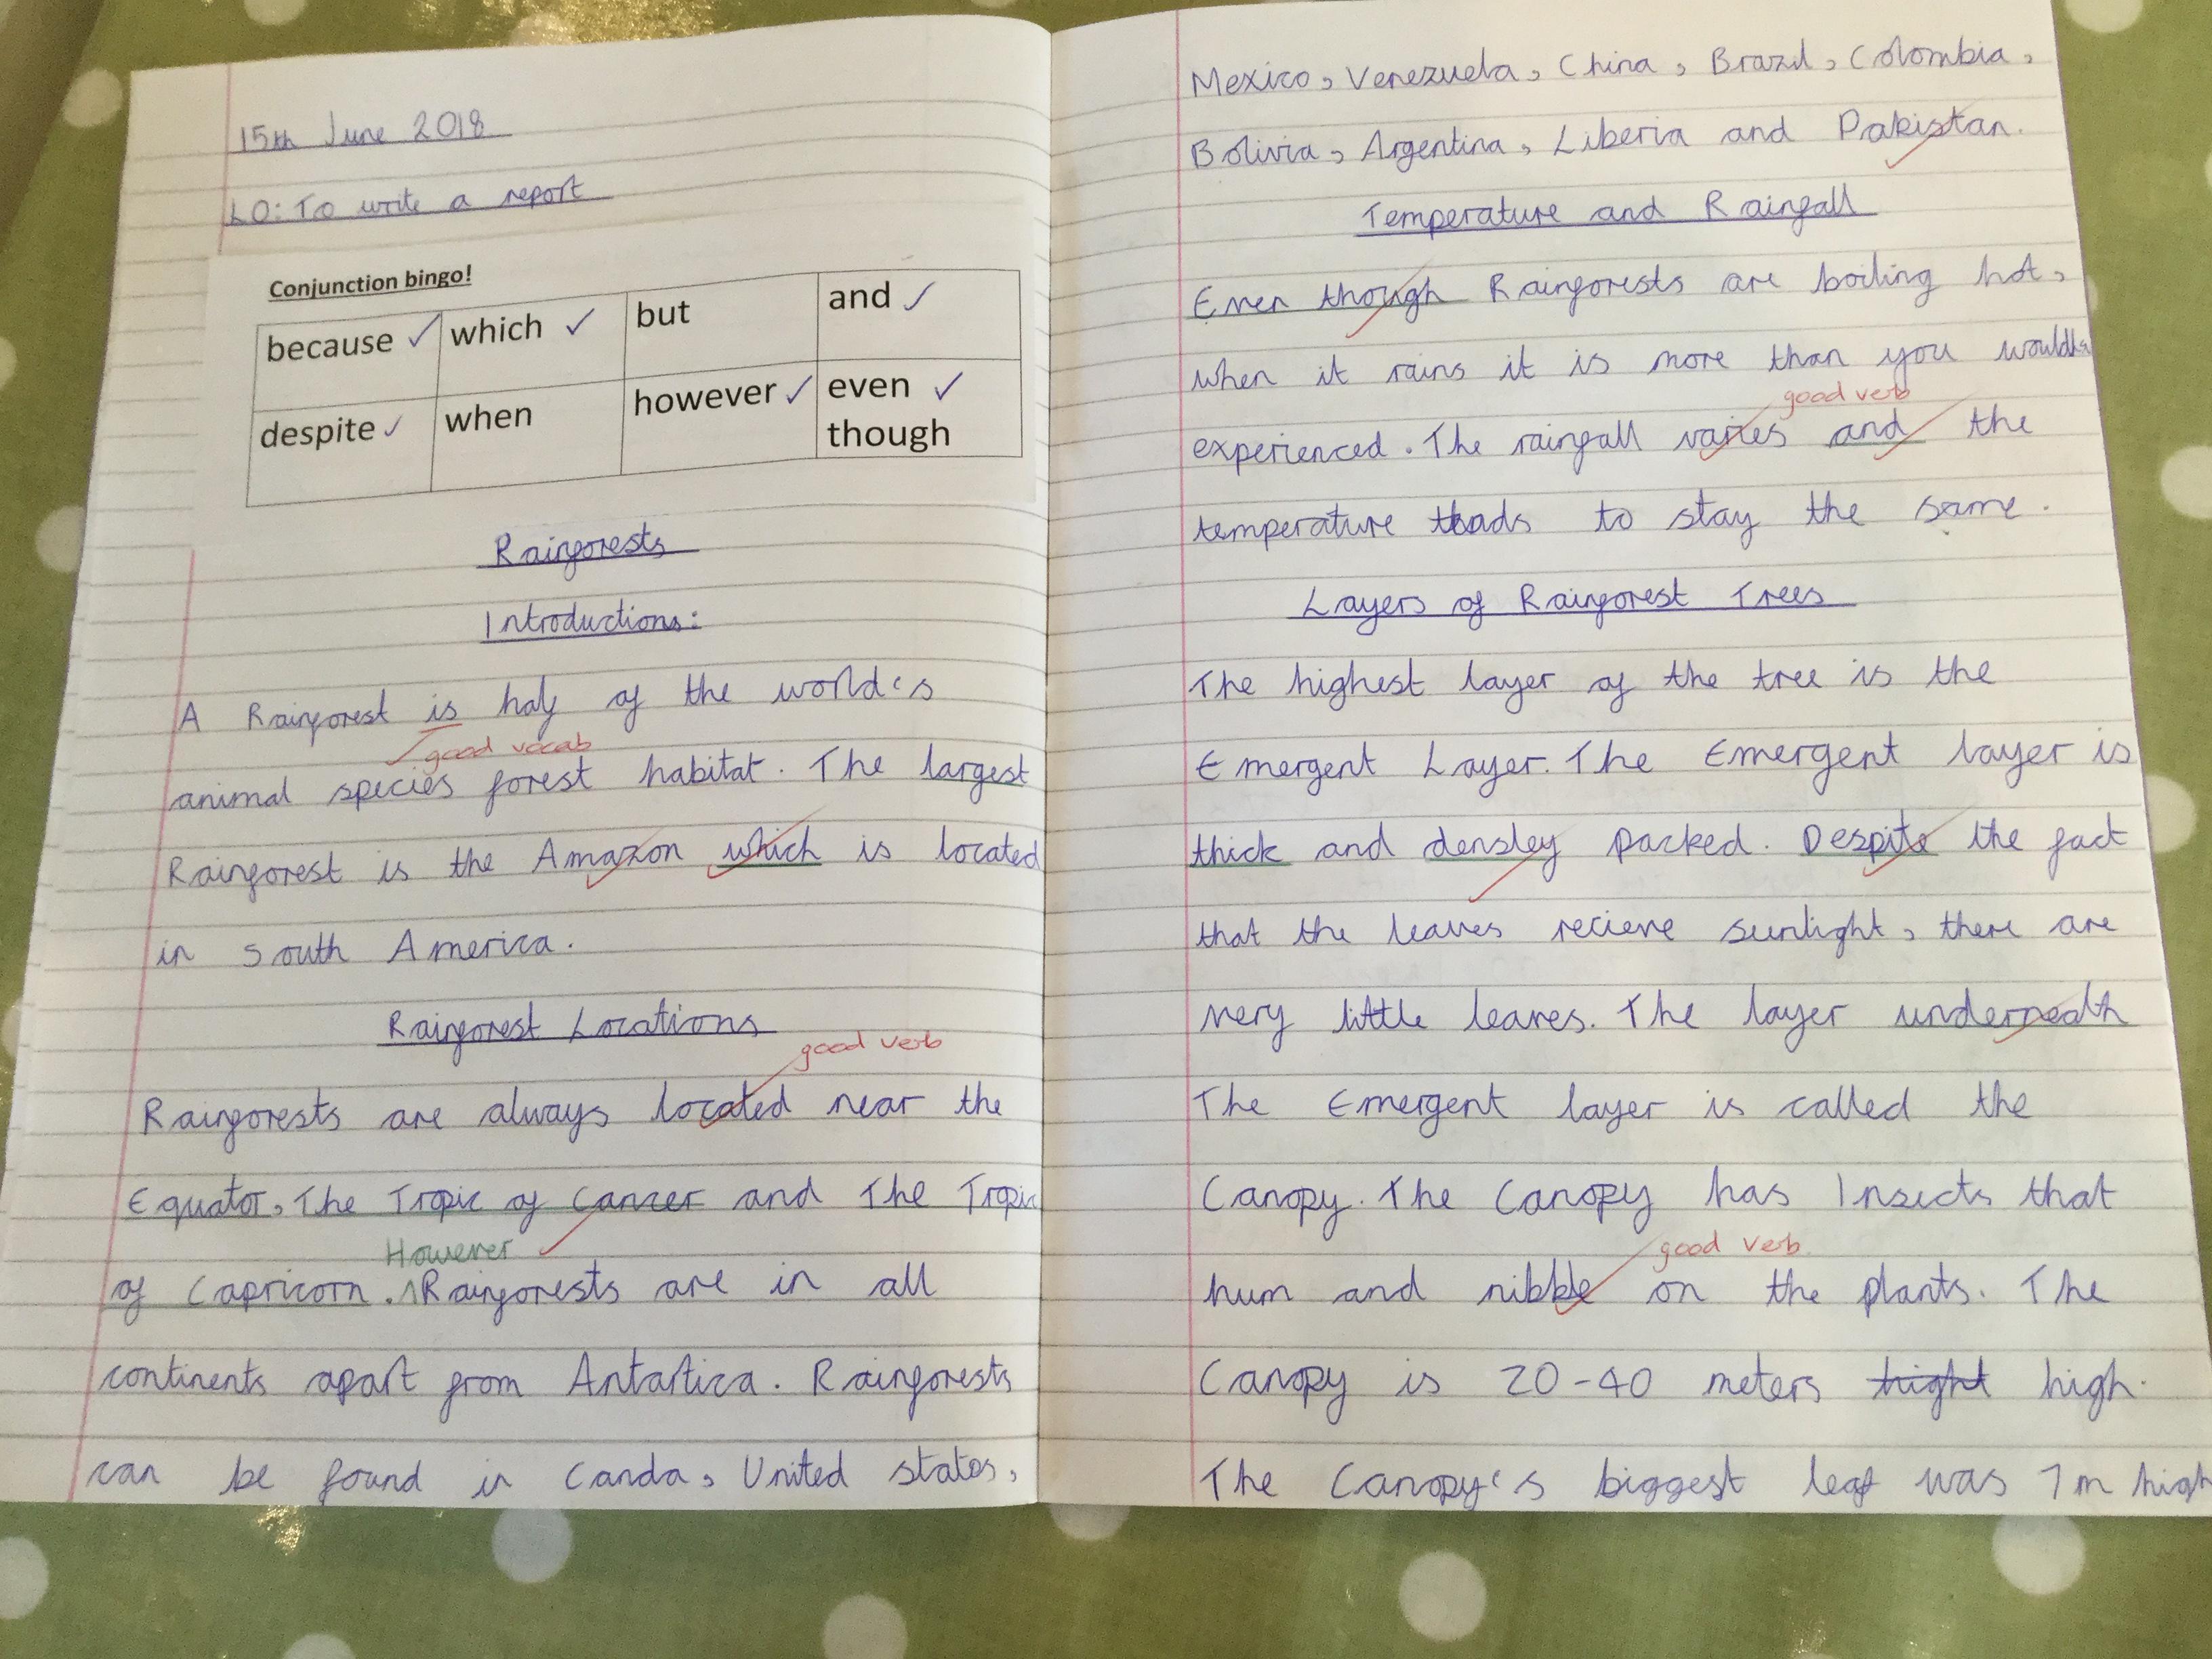 15th June 2018
LO: To write a report
Conjunction bingo!
because ✓ which ✓ but and ✓
despite ✓ when however ✓ even though ✓
Rainforests
Introductions:
A Rainforest is half of the world's
good vocab
animal species forest habitat. The largest
Rainforest is the Amazon which is located
in south America.
Rainforest Locations
good verb
Rainforests are always located near the
Equator, The Tropic of Cancer and The Tropic
However
of Capricorn. ^Rainforests are in all
continents apart from Antartica. Rainforests
can be found in Canda, United states,
Mexico, Venezuela, China, Brazil, Colombia,
Bolivia, Argentina, Liberia and Pakistan.
Temperature and Rainfall
Even though Rainforests are boiling hot,
when it rains it is more than you
good verb
experienced. The rainfall varies and the
temperature to stay the same.
Layers of Rainforest Trees
The highest layer of the tree is the
Emergent Layer. The Emergent layer is
thick and densley packed. Despite the fact
that the leaves recieve sunlight, there are
very little leaves. The layer underneath
The Emergent layer is called the
Canopy. The Canopy has Insects that
good verb
hum and nibble on the plants. The
Canopy is 20-40 meters hight high.
The Canopy's biggest leaf was 7m high